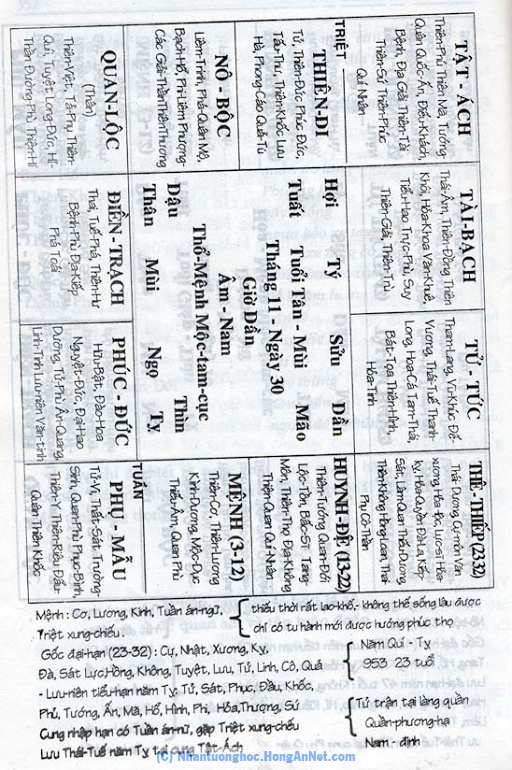 TẬT - ÁCH
Thiên-Phủ Thiên Mã, Tướng-
Quân Quốc-Ấn, Điếu-Khách,
Bệnh, Địa Giải Thiên-Tài
Thiên-Sứ, Thiên-Phúc
Quí Nhân
TRIỆT
THIÊN-DI
Tử, Thiên-Đức Phúc Đức,
Tấu-Thư, Thiên-Khốc Lưu
Hà, Phong-Cáo Quả-Tú
NÔ - BỘC
Liêm-Trinh, Phá-Quân Mộ,
Bạch-Hổ, Phi-Liêm Phượng-
Các Giải-Thần Thiên Thương
QUAN-LỘC
(Thân)
Thiên-Việt, Tả-Phụ Thiên-
Quí, Tuyệt Long-Đức, Hỉ-
Thần Đường-Phù Thiên-Hỉ
TÀI-BẠCH
Thái-Âm, Thiên-Đồng Thiên
Khôi, Hóa-Khoa Văn-Khuê,
Tiểu-Hao Trực-Phù, Suy
Thiên-Giải, Thiên-Trù
Hợi Tý Sửu Dần
Tuất Tuổi Tân - Mùi Mão
Tháng 11 - Ngày 30
Giờ Dần
Âm - Nam
Thổ-Mệnh Mộc-tam-cục
Dậu Thìn
Thân Mùi Ngọ Tỵ
ĐIỀN - TRẠCH
Thai, Tuế-Phá, Thiên-Hư
Bệnh-Phù, Địa-Kiếp
Phá Toái
TỬ - TỨC
Tham-Lang, Vũ-Khúc, Đế-
Vượng, Thái-Tuế Thanh
Long, Hoa-Cái Tam-Thai,
Bát-Tọa Thiên-Hình,
Hỏa-Tinh
PHÚC - ĐỨC
Hữu-Bật, Đào-Hoa
Nguyệt-Đức, Đại-Hao
Dưỡng, Tử-Phù Ân-Quang,
Linh-Tinh Lưu-niên Văn-tinh
THÊ-THIẾP (23-32)
Thái-Dương, Cự-môn Văn
xương, Hóa lộc, Lực-sĩ Hóa-
kỵ, Hóa-Quyền Đà-La, Kiếp-
Sát, Lâm-Quan Thiếu-Dương,
Thiên-Không Hồng-Loan, Thai
Phụ Cô-Thần
HUYNH-ĐỆ (13-22)
Thiên-Tướng Quan-Đới
Lộc-Tồn, Bác-Sĩ Tang-
Môn, Thiên-Thọ Địa-Không
Thiên-Quan Quí-Nhân
MỆNH (3-12)
Thiên-Cơ, Thiên-Lương
Kình-Dương, Mộc-Dục
Thiếu-Âm, Quan Phủ
TUẦN
PHỤ - MẪU
Tử-Vi, Thất-Sát, Trường-
Sinh, Quan-Phù Phục-Binh,
Thiên-Y Thiên-Riêu Đẩu-
Quân Thiên Khốc
Mệnh : Cơ, Lương, Kình, Tuần án-ngữ, thiếu thời rất lao-khổ,- không thể sống lâu được
Triệt xung-chiếu. chỉ có tu hành mới được hưởng phúc thọ
Gốc đại-hạn (23-32) : Cự, Nhật, Xương, Kỵ, Năm Quí - Tỵ
Đà, Sát Lực, Hồng, Không, Tuyệt, Lưu, Tứ, Linh, Cô, Quả 953 23 tuổi
- Lưu-niên tiểu-hạn năm Tỵ: Tử, Sát, Phục, Đẩu, Khốc,
Phủ, Tướng, Ấn, Mã, Hổ, Hình, Phi, Hỏa, Thượng, Sứ Tử trận tại làng quần
Cung nhập hạn có Tuần án-ngữ, gặp Triệt xung-chiếu Quần-phương-hạ
Lưu Thái-Tuế năm Tỵ tại cung Tật-Ách Nam - định
(C) Nhantuonghoc.HongAnNet.com